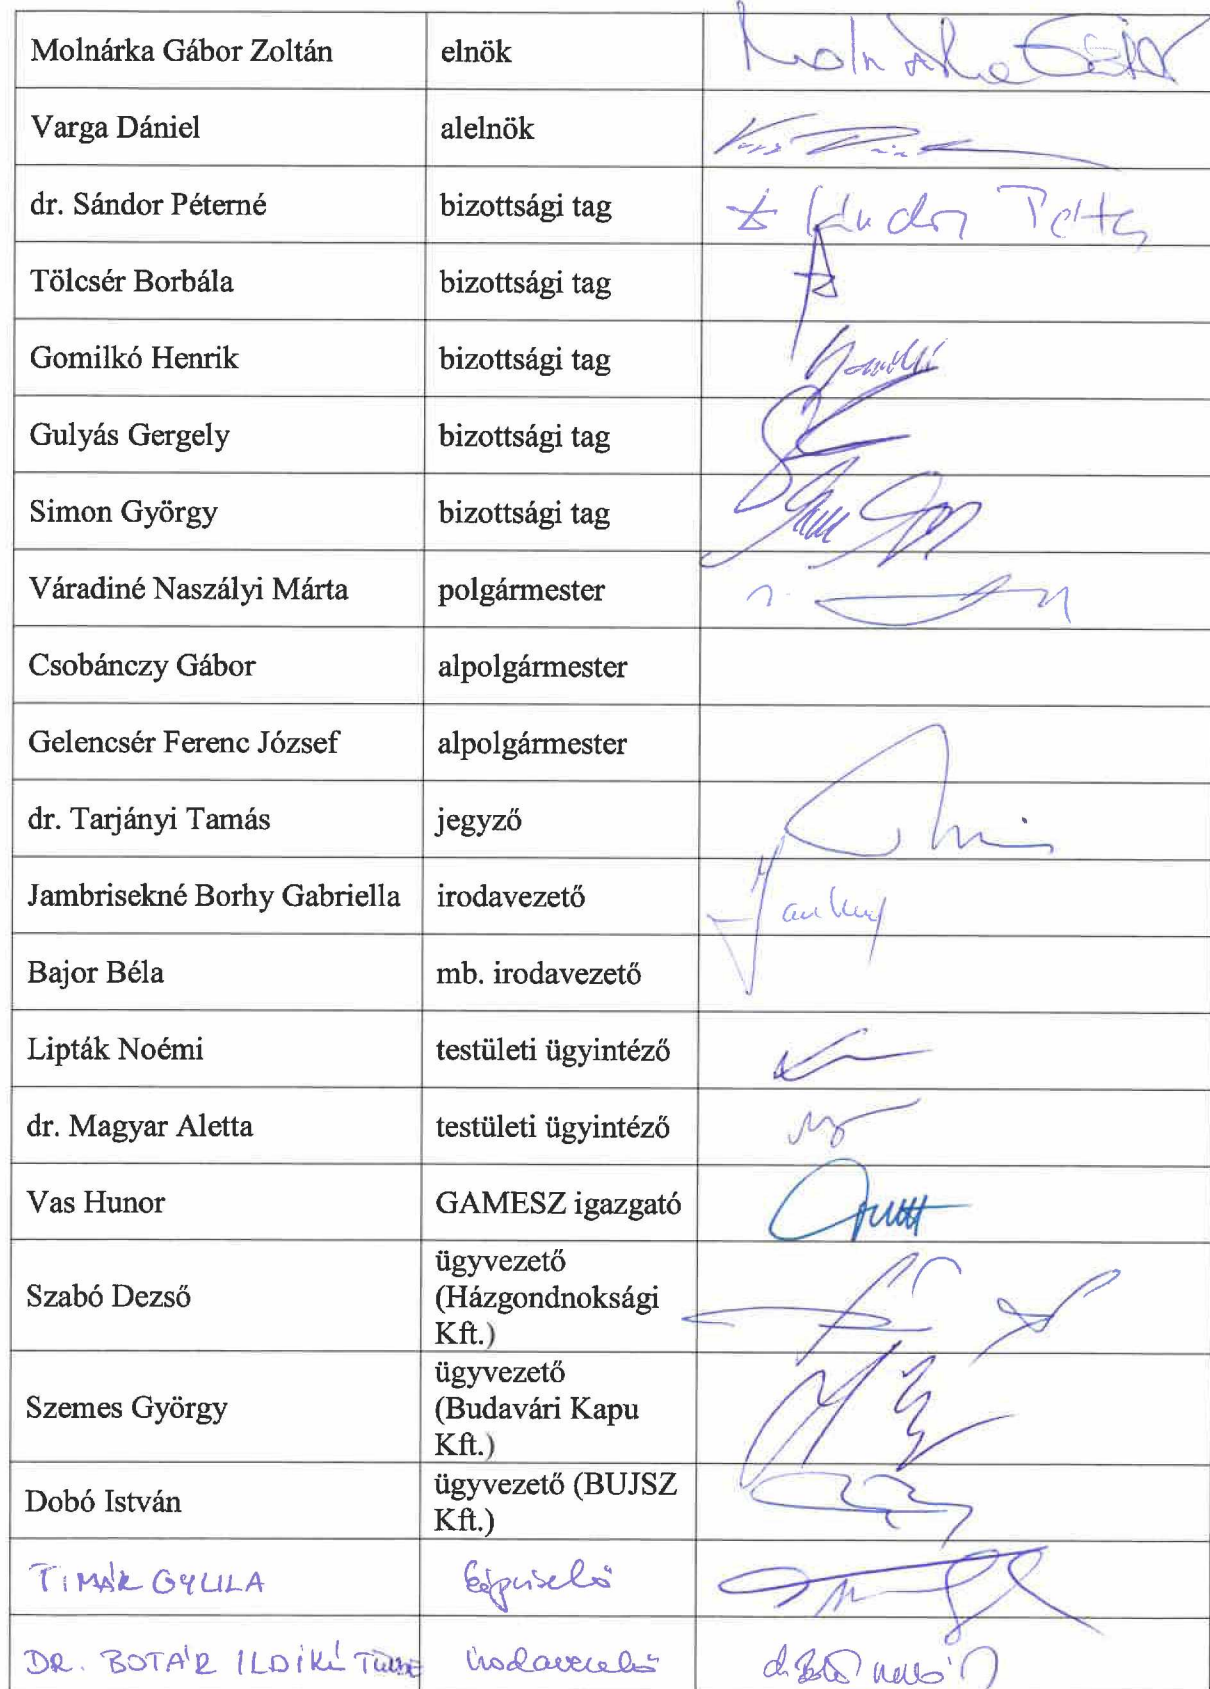 Molnárka Gábor Zoltán elnök Molnárka Gábor
Varga Dániel alelnök
dr. Sándor Péterné bizottsági tag
Tölcsér Borbála bizottsági tag
Gomilkó Henrik bizottsági tag
Gulyás Gergely bizottsági tag
Simon György bizottsági tag
Váradiné Naszályi Márta polgármester
Csobánczy Gábor alpolgármester
Gelencsér Ferenc József alpolgármester
dr. Tarjányi Tamás jegyző
Jambrisekné Borhy Gabriella irodavezető
Bajor Béla mb. irodavezető
Lipták Noémi testületi ügyintéző
dr. Magyar Aletta testületi ügyintéző
Vas Hunor GAMESZ igazgató
Szabó Dezső
ügyvezető
(Házgondnoksági
Kft.)
Szemes György
ügyvezető
(Budavári Kapu
Kft.)
Dobó István
ügyvezető (BUJSZ
Kft.)
TIMÁR GYULA képviselő
DR. BOTÁR ILDIKÓ irodavezető